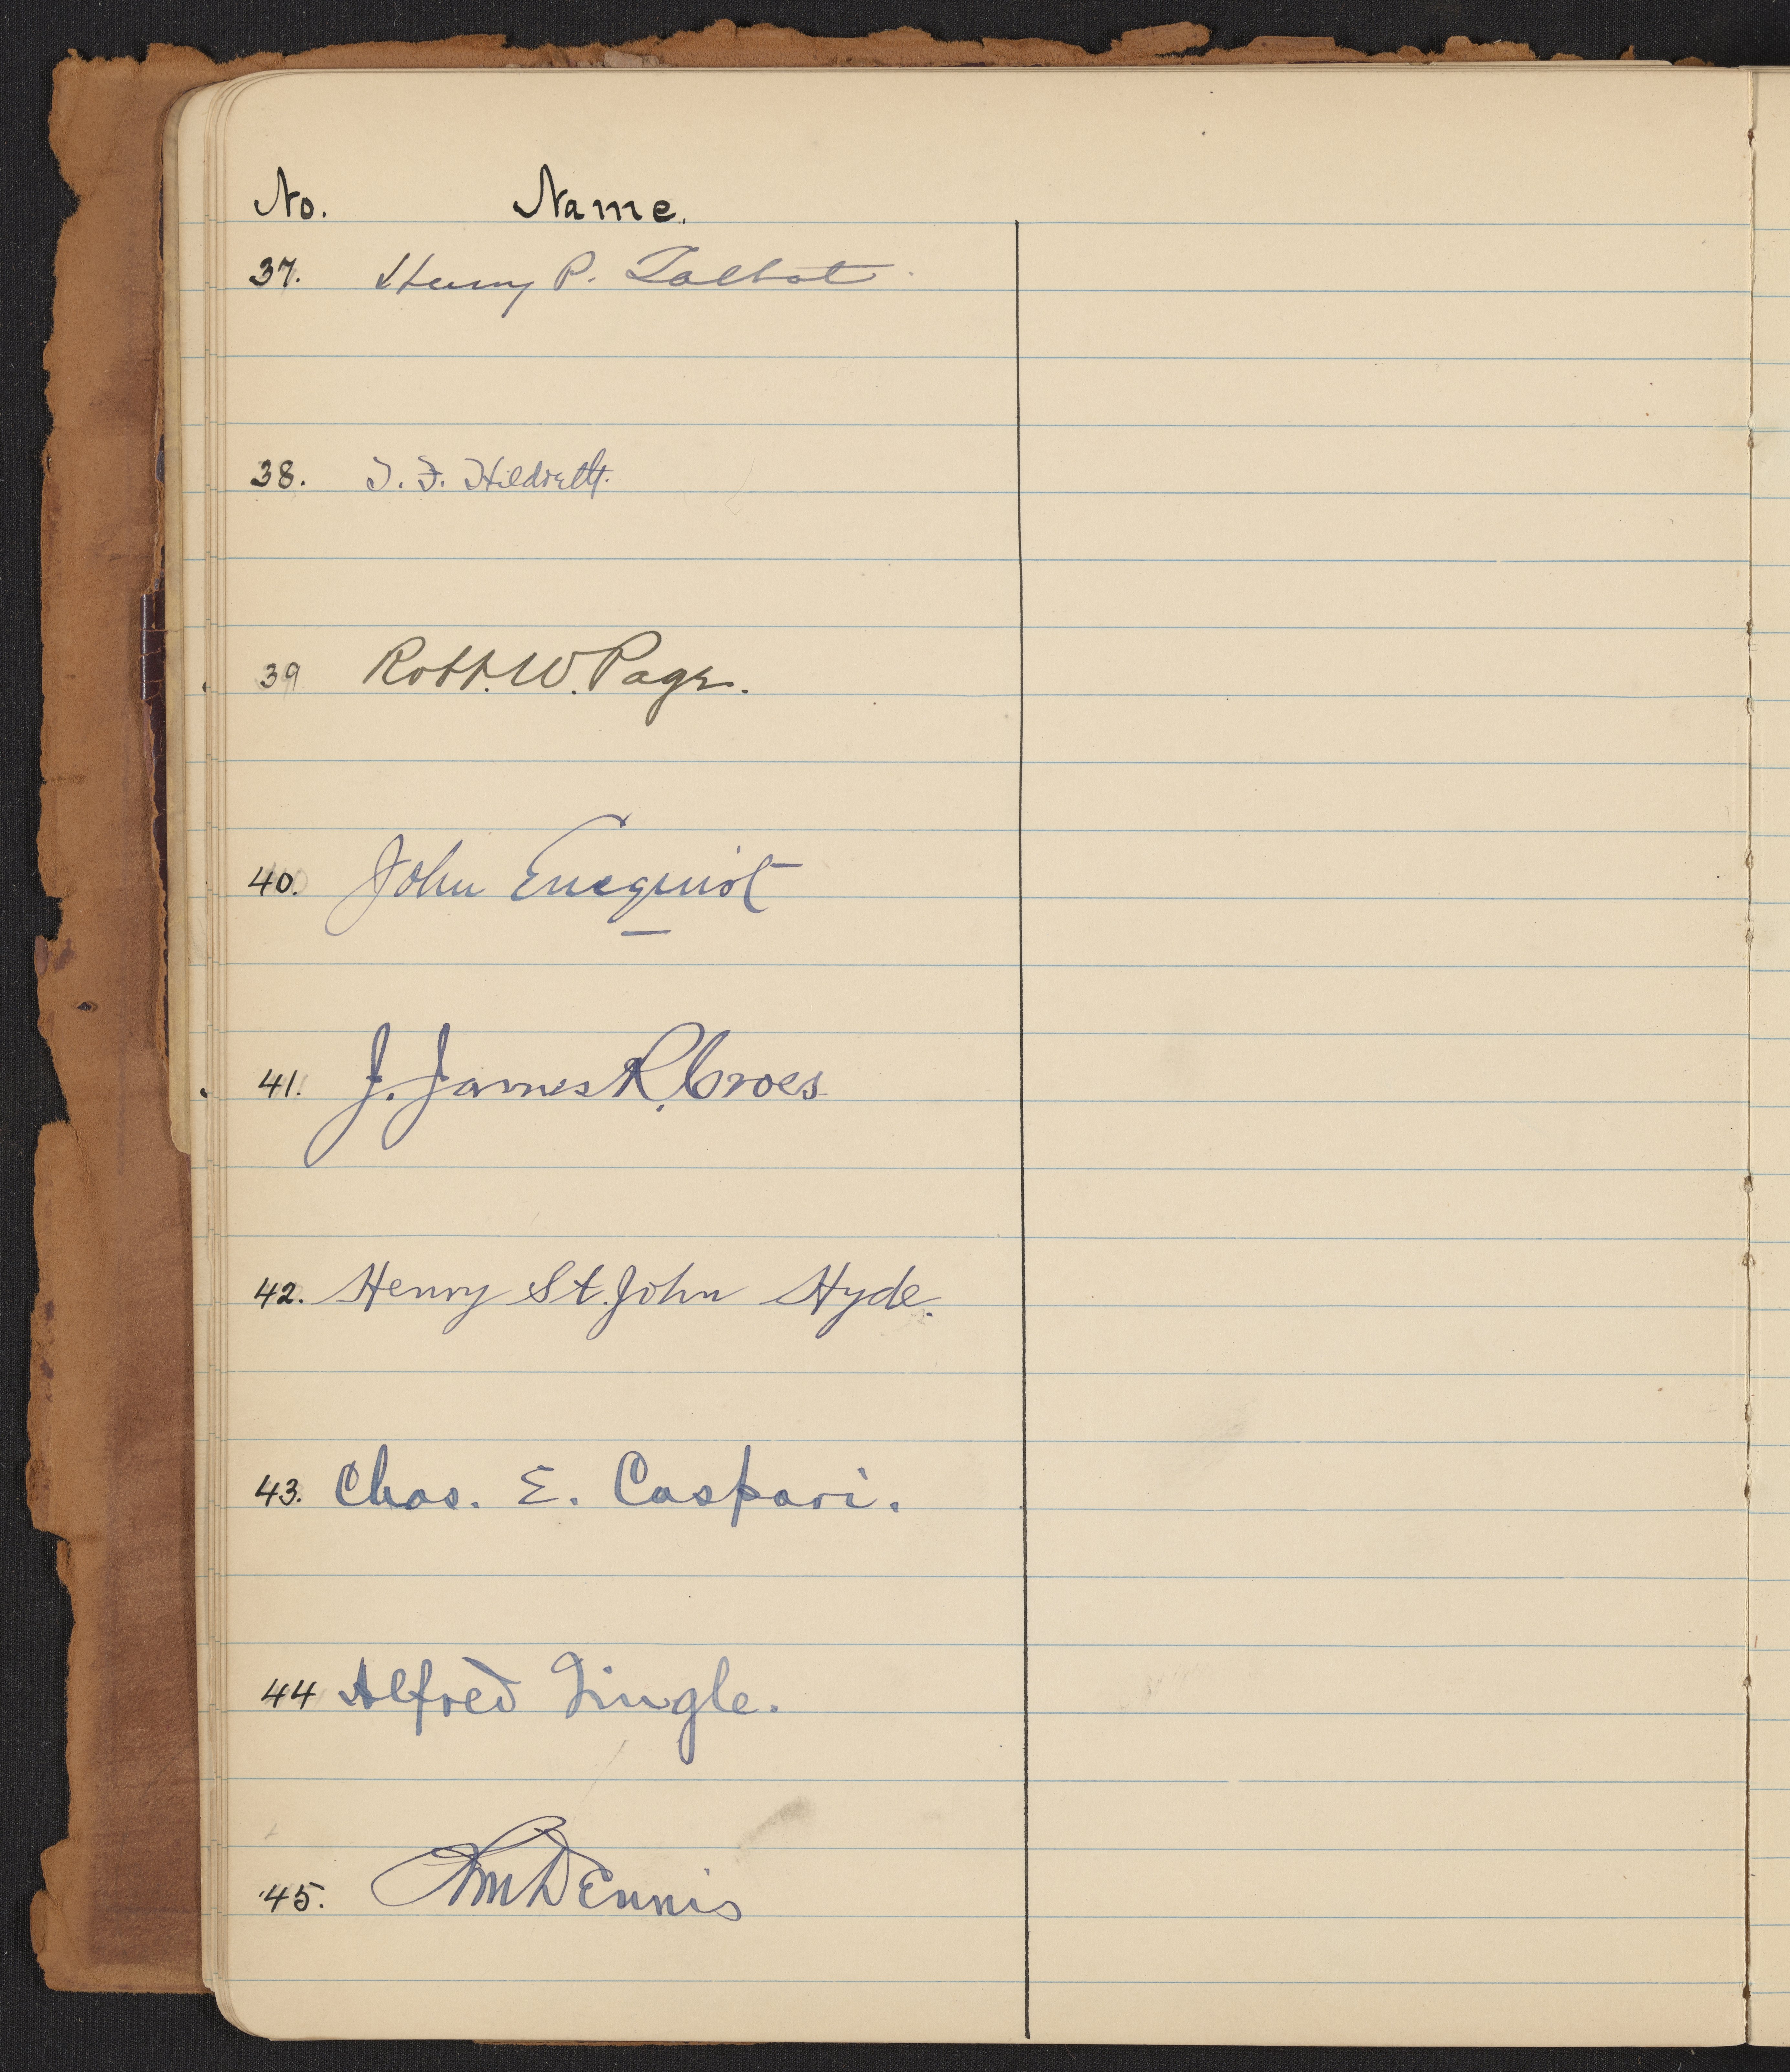 No. Name.
37. Henry P. Talbot
38. J. F. Hildreth.
39 Robt. W. Page.
40. John Enequist
41. J. James R. Croes
42. Henry St. John Hyde.
43. Chas. E. Caspari.
44 Alfred Tingle.
45. Dennis